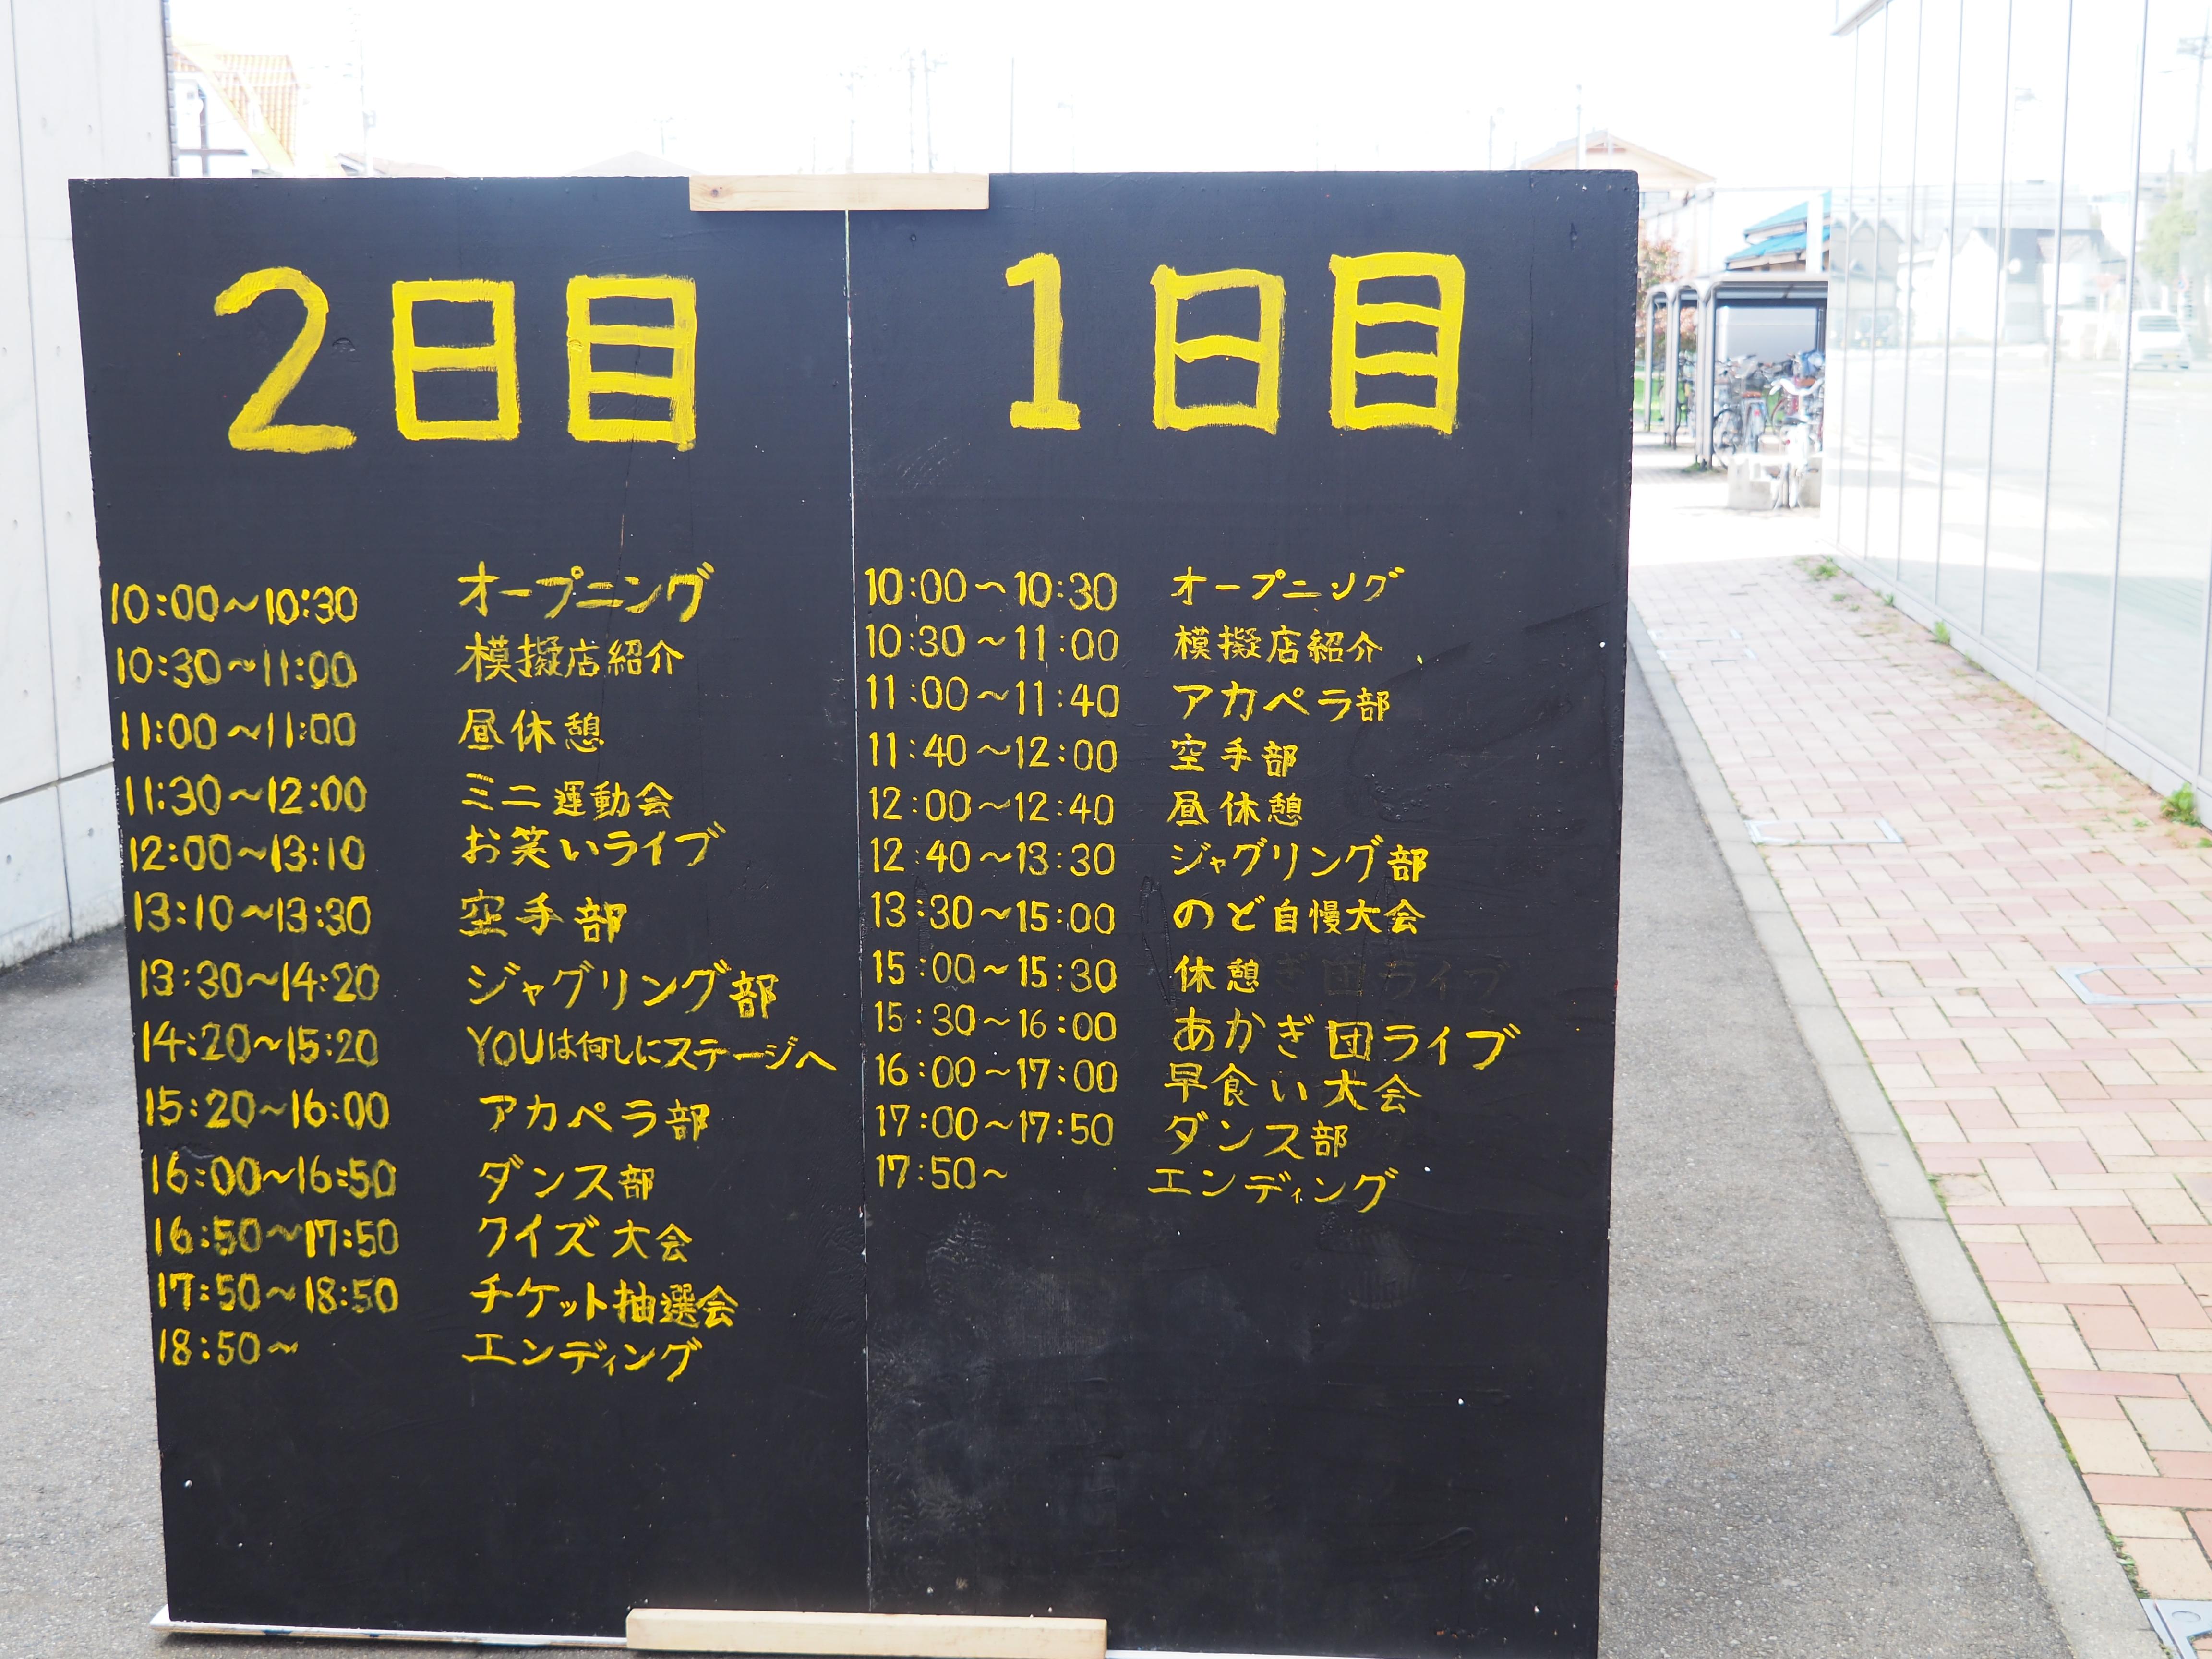 2日目
10:00～10:30 オープニング
10:30～11:00 模擬店紹介
11:00～11:00 昼休憩
11:30～12:00 ミニ運動会
12:00～13:10 お笑いライブ
13:10～13:30 空手部
13:30～14:20 ジャグリング部
14:20～15:20 YOUは何しにステージへ
15:20～16:00 アカペラ部
16:00～16:50 ダンス部
16:50～17:50 クイズ大会
17:50～18:50 チケット抽選会
18:50～ エンディング
1日目
10:00～10:30 オープニング
10:30～11:00 模擬店紹介
11:00～11:40 アカペラ部
11:40～12:00 空手部
12:00～12:40 昼休憩
12:40～13:30 ジャグリング部
13:30～15:00 のど自慢大会
15:00～15:30 休憩
15:30～16:00 あかぎ団ライブ
16:00～17:00 早食い大会
17:00～17:50 ダンス部
17:50～ エンディング